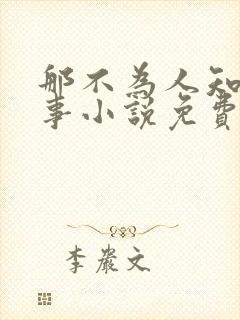 那不為人知
事小說免費
李巖文